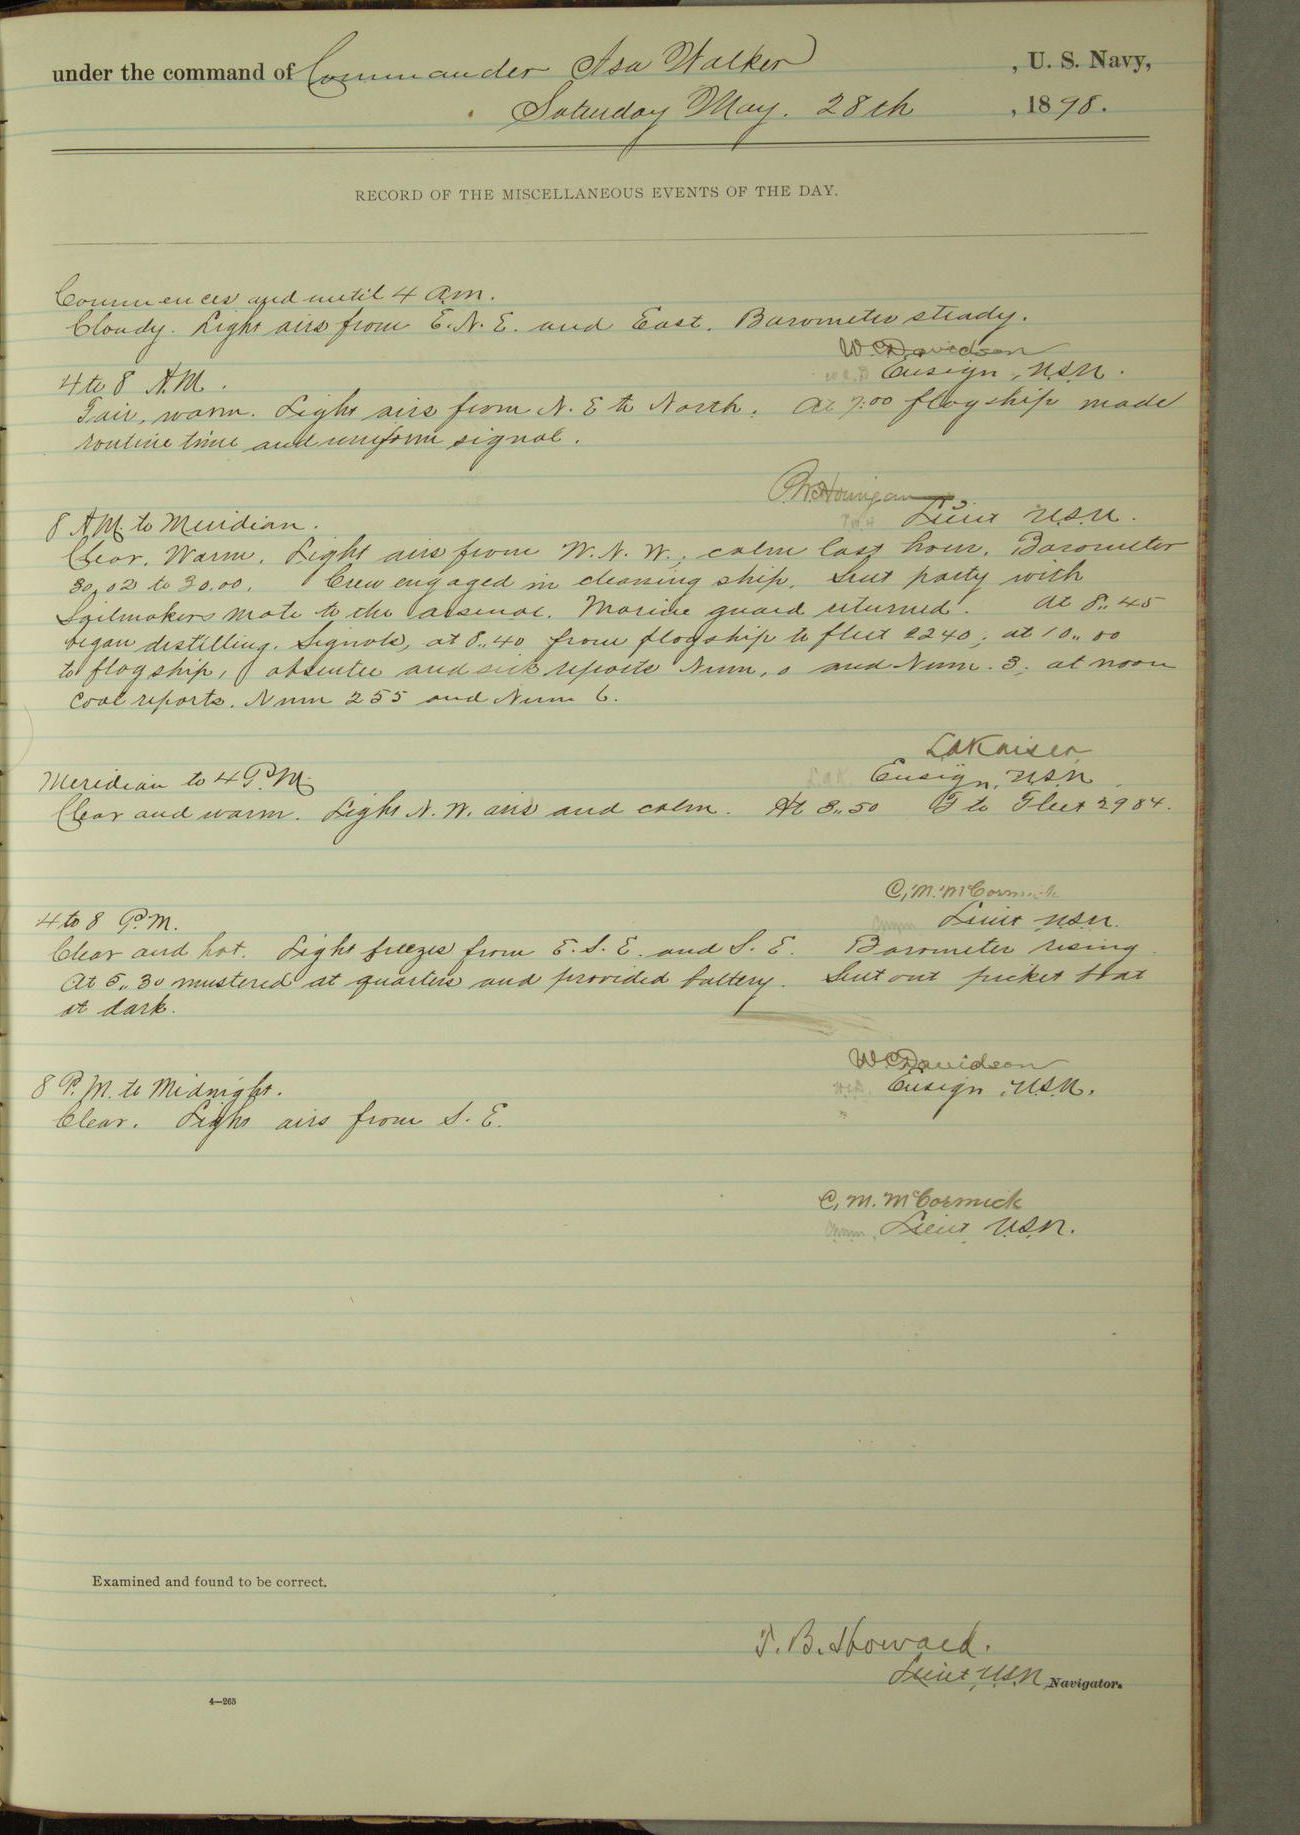 under the command of Commander Asa Walker, U. S. Navy,
Saturday May. 28th, 1898.
RECORD OF THE MISCELLANEOUS EVENTS OF THE DAY.
Commences and until 4 a.m.
Cloudy. Light airs from E.N.E. and East. Barometer steady.
W. C. Davidson
Ensign, U.S.N.
4 to 8 A.M.
Fair, warm. Light airs from N. E to North. At 7:00 flagship made
routine time and uniform signal.
P. W. Hourigan
Lieut U.S.N.
8 A.M. to Meridian.
Clear. Warm. Light airs from W. N. W., calm last hour. Barometer
30.02 to 30.00. Crew engaged in cleaning ship. Sent party with
Sailmakers mate to the arsenal. Marine guard returned. At 8.45
began distilling. Signals, at 8.40 from flagship to fleet 2240; at 10.00
to flagship, absentee and sick reports Num. 0 and Num. 3; at noon
coal reports. Num 255 and Num 6.
L A Kaiser
Ensign, U.S.N.
Meridian to 4 P.M.
Clear and warm. Light N. W. airs and calm. At 3.50 F to Fleet 2984.
C. M. McCormick
Lieut U.S.N.
4 to 8 P.M.
Clear and hot. Light breezes from E. S. E. and S. E. Barometer rising
At 5.30 mustered at quarters and provided battery. Sent out picket boat
at dark.
W. C. Davidson
Ensign, U.S.N.
8 P.M. to Midnight.
Clear. Light airs from S. E.
C. M. McCormick
Lieut U.S.N.
Examined and found to be correct.
T. B. Howard.
Lieut U.S.N., Navigator.
4—265